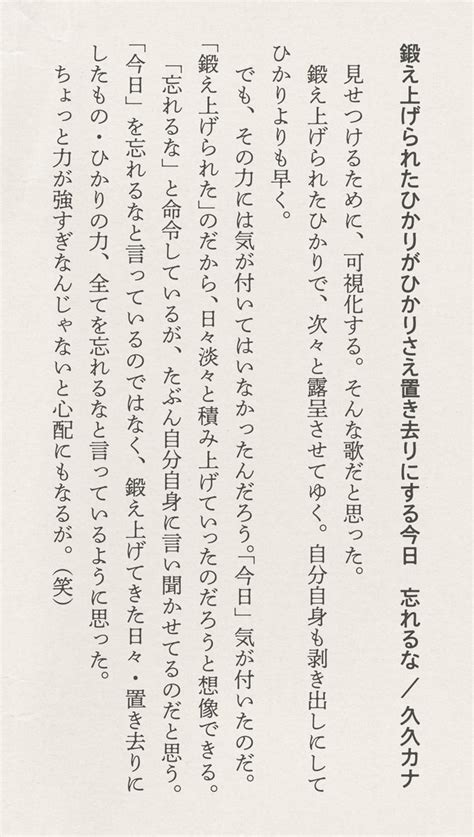 鍛え上げられたひかりがひかりさえ置き去りにする今日　忘れるな / 久久カナ
見せつけるために、可視化する。そんな歌だと思った。
鍛え上げられたひかりで、次々と露呈させてゆく。自分自身も剥き出しにして
ひかりよりも早く。
でも、その力には気が付いてはいなかったんだろう。「今日」気が付いたのだ。
「鍛え上げられた」のだから、日々淡々と積み上げていったのだろうと想像できる。
「忘れるな」と命令しているが、たぶん自分自身に言い聞かせてるのだと思う。
「今日」を忘れるなと言っているのではなく、鍛え上げてきた日々・置き去りに
したもの・ひかりの力、全てを忘れるなと言っているように思った。
ちょっと力が強すぎなんじゃないと心配にもなるが。（笑）